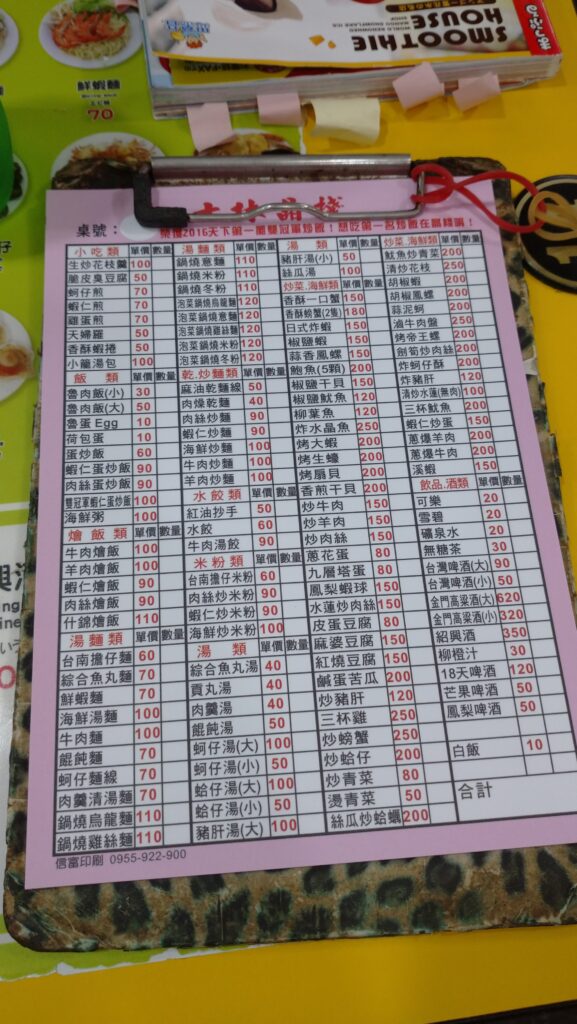 SMOOTHIE
HOUSE
WORLD RENOWNED
MANGO SNOWFLAKE ICE
SHOP
まっぷる
鮮蝦麵
70
桌號：
榮獲2016天下第一蘭雙冠軍炒飯！想吃第一名炒飯在高棧喔！
小吃類 單價 數量
生炒花枝羹 100
脆皮臭豆腐 50
蚵仔煎 70
蝦仁煎 70
雞蛋煎 70
天婦羅 50
香酥蝦捲 50
小籠湯包 100
飯類 單價 數量
魯肉飯(小) 30
魯肉飯(大) 50
魯蛋 Egg 10
荷包蛋 10
蛋炒飯 60
蝦仁蛋炒飯 90
肉絲蛋炒飯 90
雙冠軍蝦仁蛋炒飯 100
海鮮粥 100
燴飯類 單價 數量
牛肉燴飯 100
羊肉燴飯 100
蝦仁燴飯 90
肉絲燴飯 90
什錦燴飯 110
湯麵類 單價 數量
台南擔仔麵 60
綜合魚丸麵 70
鮮蝦麵 70
海鮮湯麵 100
牛肉麵 100
餛飩麵 70
蚵仔麵線 70
肉羹清湯麵 70
鍋燒烏龍麵 110
鍋燒雞絲麵 110
湯麵類 單價 數量
鍋燒意麵 110
鍋燒米粉 110
鍋燒冬粉 110
泡菜鍋燒烏龍麵 120
泡菜鍋燒意麵 120
泡菜鍋燒雞絲麵 120
泡菜鍋燒米粉 120
泡菜鍋燒冬粉 120
乾.炒麵類 單價 數量
麻油乾麵線 50
肉燥乾麵 40
肉絲炒麵 90
蝦仁炒麵 90
海鮮炒麵 100
牛肉炒麵 100
羊肉炒麵 100
水餃類 單價 數量
紅油抄手 50
水餃 60
牛肉湯餃 90
米粉類 單價 數量
台南擔仔米粉 60
肉絲炒米粉 90
蝦仁炒米粉 90
海鮮炒米粉 100
湯類 單價 數量
綜合魚丸湯 40
貢丸湯 40
肉羹湯 40
餛飩湯 50
蚵仔湯(大) 100
蚵仔湯(小) 50
蛤仔湯(大) 100
蛤仔湯(小) 50
豬肝湯(大) 100
湯類 單價 數量
豬肝湯(小) 50
絲瓜湯 100
炒菜.海鮮類 單價 數量
香酥一口蟹 150
香酥螃蟹(2隻) 180
日式炸蝦 150
椒鹽蝦 150
蒜香風螺 150
鮑魚(5顆) 200
椒鹽干貝 150
椒鹽魷魚 120
柳葉魚 120
炸水晶魚 250
烤大蝦 200
烤生蠔 200
烤扇貝 200
香煎干貝 200
炒牛肉 150
炒羊肉 150
炒肉絲 150
蔥花蛋 80
九層塔蛋 80
鳳梨蝦球 150
水蓮炒肉絲 150
皮蛋豆腐 80
麻婆豆腐 150
紅燒豆腐 150
鹹蛋苦瓜 200
炒豬肝 120
三杯雞 250
炒螃蟹 250
炒蛤仔 200
炒青菜 80
燙青菜 50
絲瓜炒蛤蠣 200
炒菜.海鮮類 單價 數量
魷魚炒青菜 200
清炒花枝 250
胡椒蝦 200
胡椒鳳螺 200
蒜泥蚵 200
滷牛肉盤 250
烤帝王螺 200
劍筍炒肉絲 200
炸蚵仔酥 200
炸豬肝 120
清炒水蓮(無肉) 100
三杯魷魚 200
蝦仁炒蛋 150
蔥爆羊肉 200
蔥爆牛肉 200
溪蝦 150
飲品.酒類 單價 數量
可樂 20
雪碧 20
礦泉水 20
無糖茶 30
台灣啤酒(大) 90
台灣啤酒(小) 50
金門高粱酒(大) 620
金門高粱酒(小) 320
紹興酒 350
柳橙汁 30
18天啤酒 120
芒果啤酒 50
鳳梨啤酒 50
白飯 10
合計
信富印刷 0955-922-900